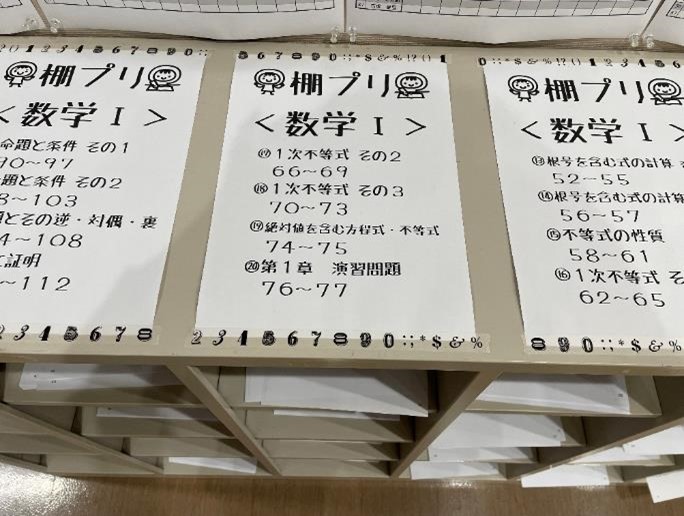 棚プリ
＜数学Ⅰ＞
命題と条件 その1
90～97
題と条件 その2
8～103
とその逆・対偶・裏
4～108
証明
～112
2 3 4 5 6 7 8
5 6 7 8 9 0 : ; * $ & % !? ( ) 1
棚プリ
＜数学Ⅰ＞
⑰1次不等式 その2
66～69
⑱1次不等式 その3
70～73
⑲絶対値を含む方程式・不等式
74～75
⑳第1章 演習問題
76～77
2 3 4 5 6 7 8 9 0 : ; * $ & %
棚プリ
＜数学Ⅰ＞
⑬根号を含む式の計算
52～55
⑭根号を含む式の計算
56～57
⑮不等式の性質
58～61
⑯1次不等式 そ
62～65
8 9 0 : ; * $ & %